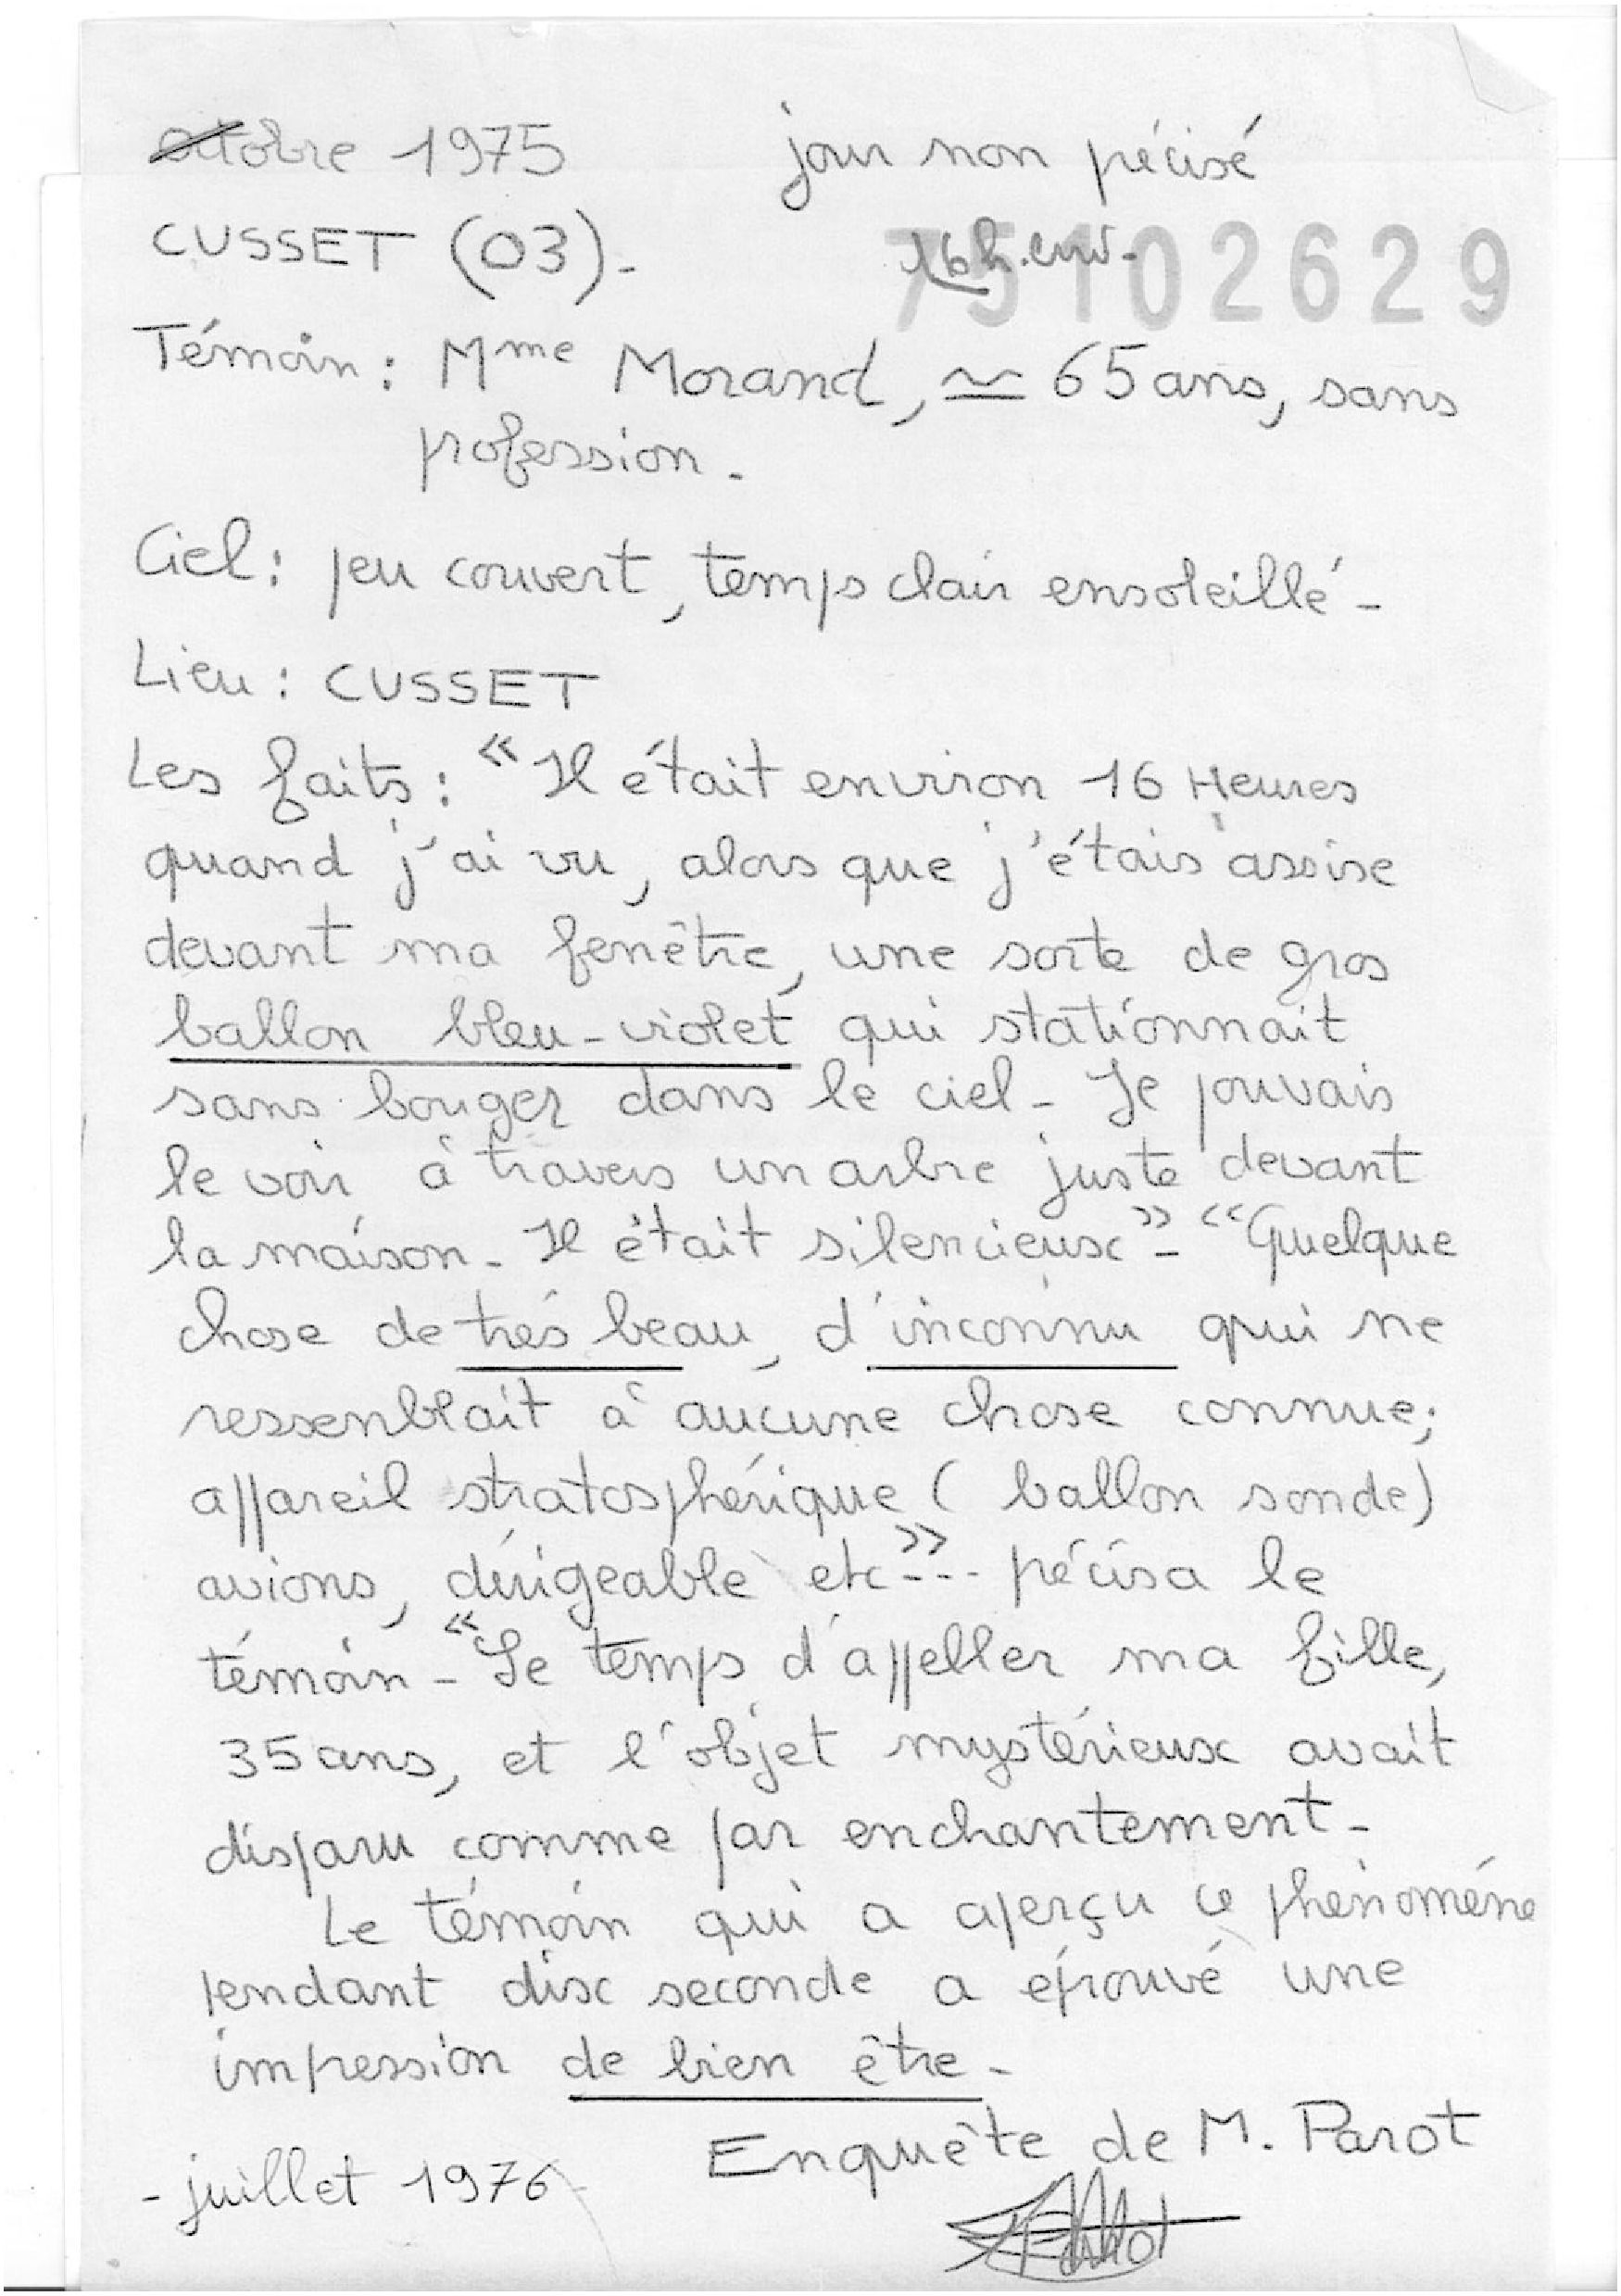 octobre 1975 jour non précisé
CUSSET (03) - 16h. env -
75102629
Témoin : Mme Morand, ≃ 65 ans, sans
profession -
Ciel : peu couvert, temps clair ensoleillé -
Lieu : CUSSET
Les faits : « Il était environ 16 Heures
quand j'ai vu, alors que j'étais assise
devant ma fenêtre, une sorte de gros
ballon bleu-violet qui stationnait
sans bouger dans le ciel - Je pouvais
le voir à travers un arbre juste devant
la maison - Il était silencieux » - « Quelque
chose de trés beau, d'inconnu qui ne
ressenblait à aucune chose connue ;
appareil stratosphérique ( ballon sonde)
avions, dirigeable etc » --- précisa le
témoin - « Le temps d'appeller ma fille,
35 ans, et l'objet mystérieux avait
disparu comme par enchantement -
Le témoin qui a aperçu ce phénoméne
pendant dix seconde a éprouvé une
impression de bien être -
Enquête de M. Parot
- juillet 1976 -